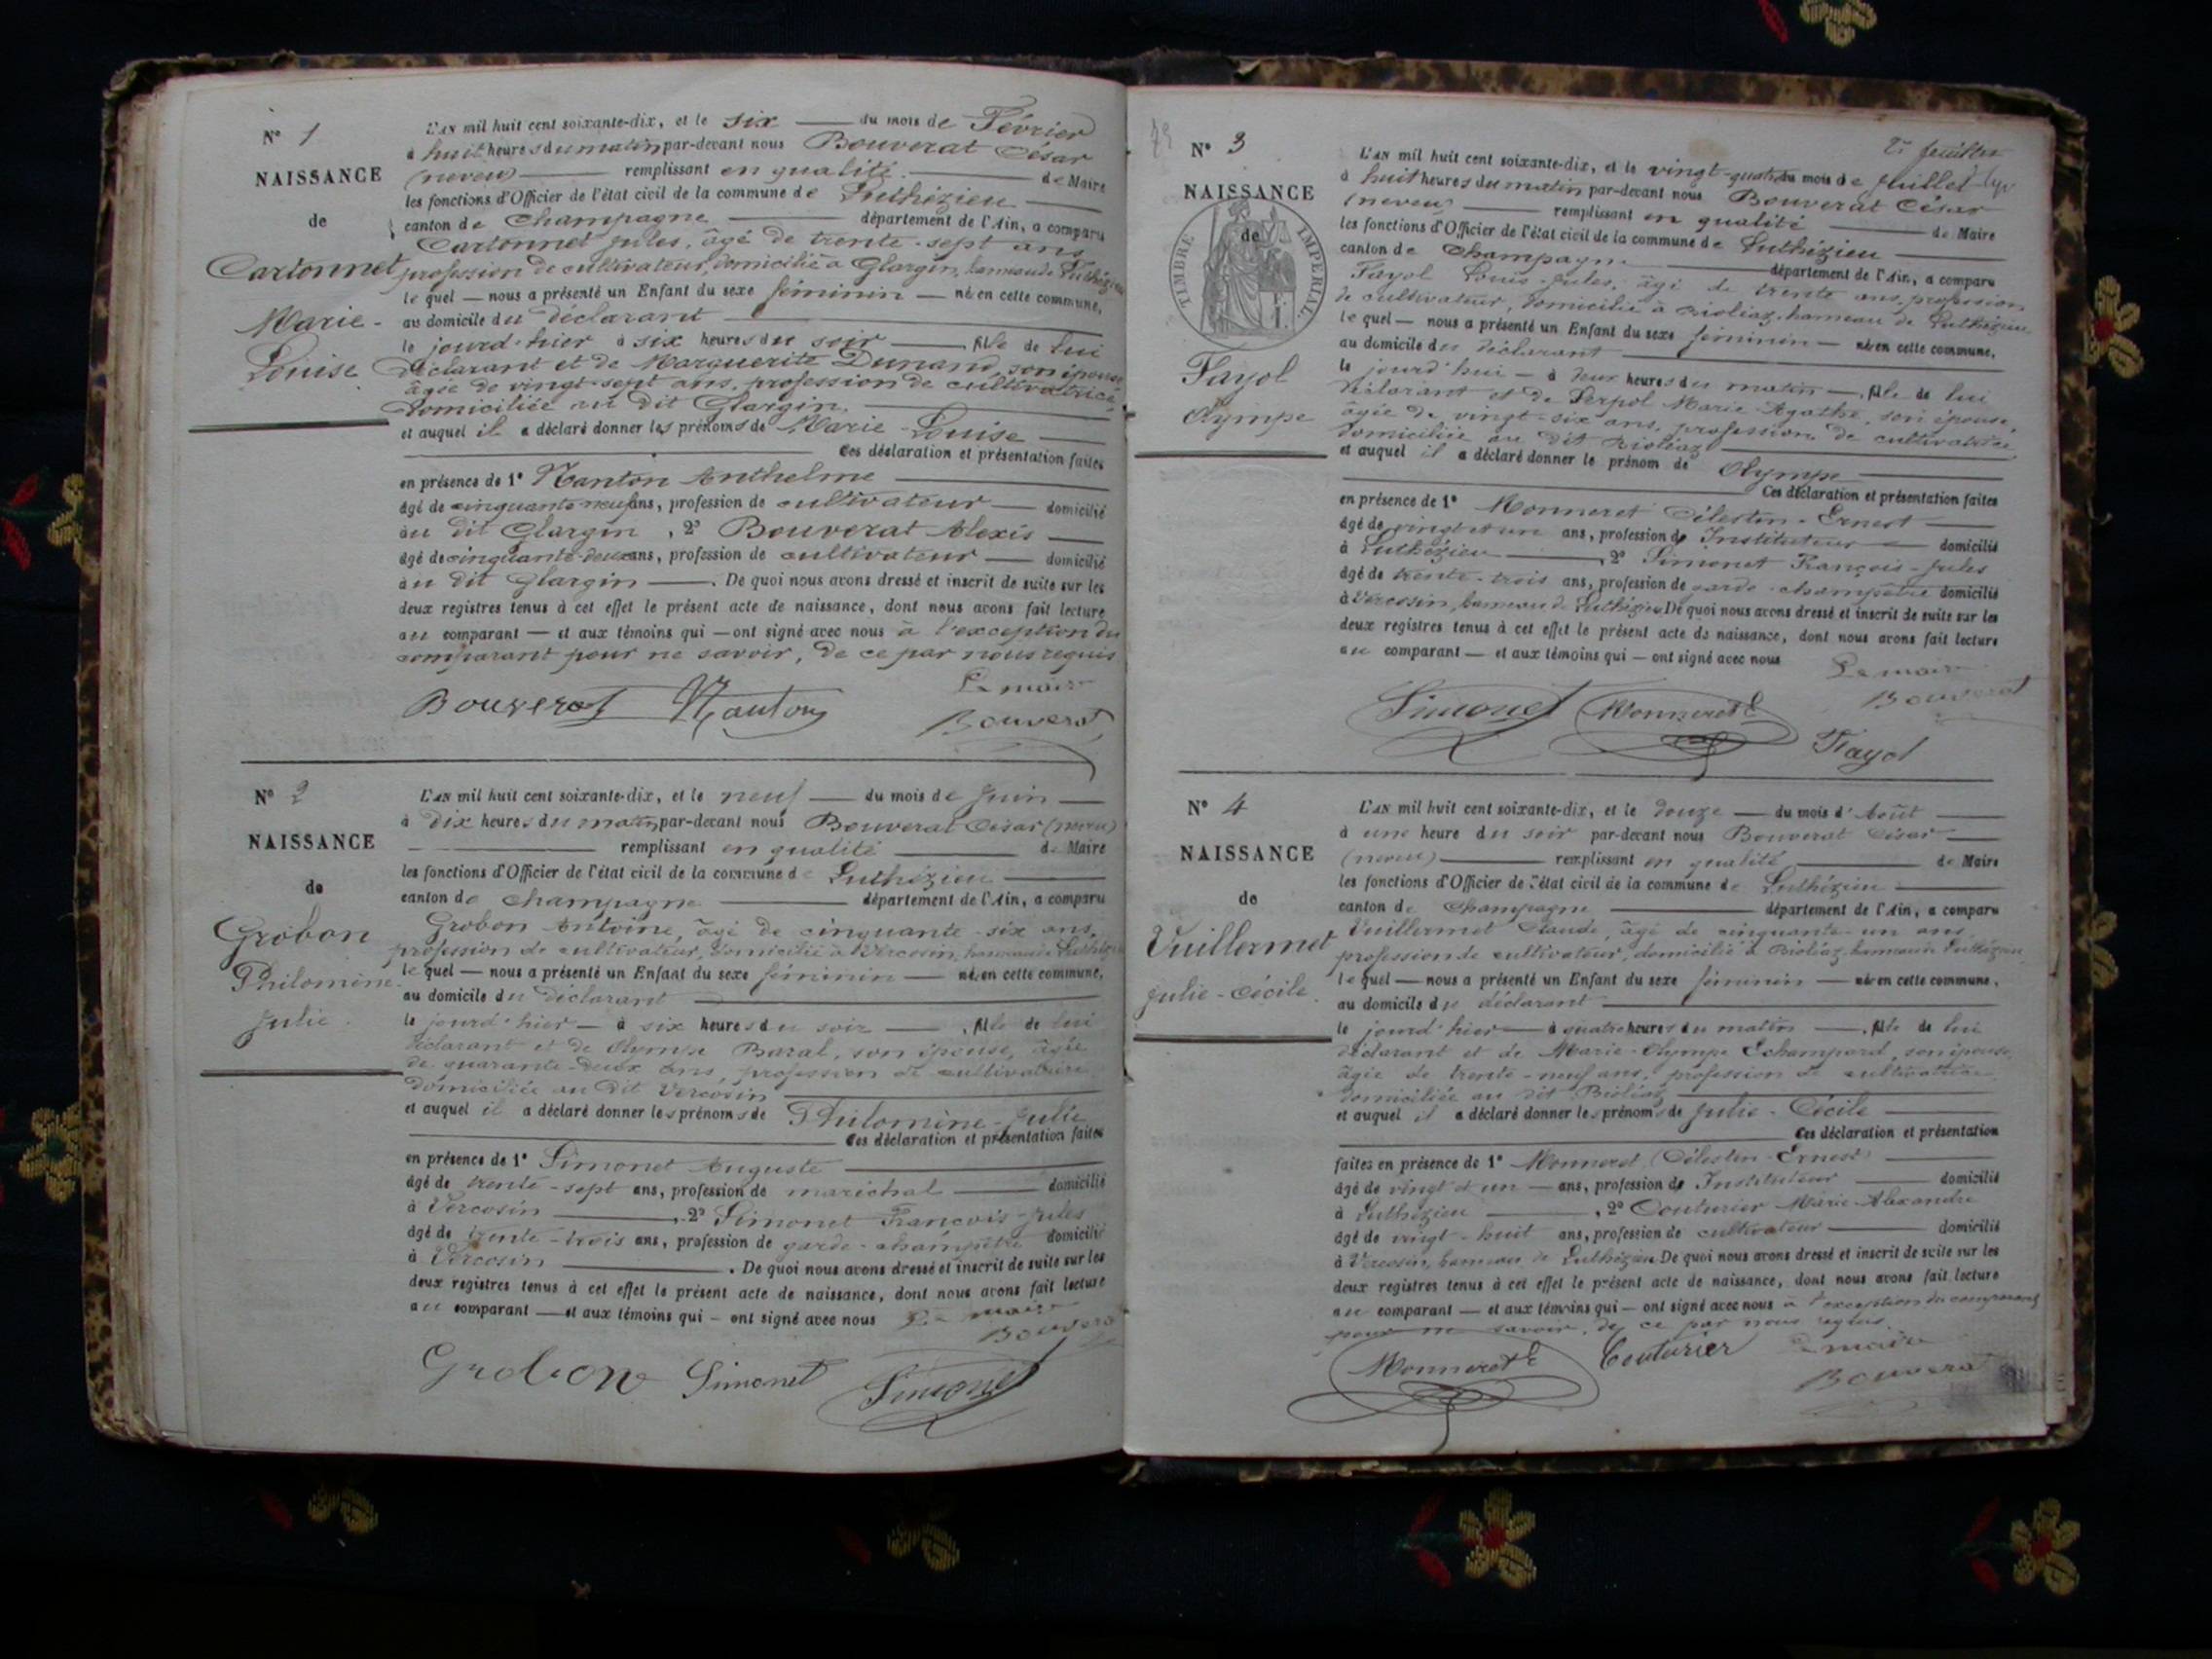 N° 1
NAISSANCE
de
Cartonnet
Marie-
Louise
L'AN mil huit cent soixante-dix, et le six du mois de Février
à huit heures du matin par-devant nous Bouverat César
(neveu) remplissant en qualité de Maire
les fonctions d'Officier de l'état civil de la commune de Luthézieu
canton de Champagne département de l'Ain, a comparu
Cartonnet Jules, âgé de trente-sept ans,
profession de cultivateur, domicilié à Glargin, hameau de Luthézieu
le quel — nous a présenté un Enfant du sexe féminin — né en cette commune,
au domicile du déclarant
le jourd'hier à six heures du soir fille de lui
déclarant et de Marguerite Dunand, son épouse
âgée de vingt-sept ans, profession de cultivatrice,
domiciliée au dit Glargin.
et auquel il a déclaré donner les prénoms de Marie-Louise
Ces déclaration et présentation faites
en présence de 1° Nanton Anthelme
âgé de cinquante-neuf ans, profession de cultivateur domicilié
au dit Glargin, 2° Bouverat Alexis
âgé de cinquante-deux ans, profession de cultivateur domicilié
au dit Glargin. De quoi nous avons dressé et inscrit de suite sur les
deux registres tenus à cet effet le présent acte de naissance, dont nous avons fait lecture
au comparant — et aux témoins qui — ont signé avec nous à l'exception du
comparant pour ne savoir, de ce par nous requis
Le maire
Bouverat Nanton Bouverat
N° 2
NAISSANCE
de
Grobon
Philomine
Julie.
L'AN mil huit cent soixante-dix, et le neuf du mois de Juin
à dix heures du matin par-devant nous Bouverat César (neveu)
remplissant en qualité de Maire
les fonctions d'Officier de l'état civil de la commune de Luthézieu
canton de Champagne département de l'Ain, a comparu
Grobon Antoine, âgé de cinquante-six ans,
profession de cultivateur, domicilié à Vercosin, hameau de Luthézieu
le quel — nous a présenté un Enfant du sexe féminin — né en cette commune,
au domicile du déclarant
le jourd'hier — à six heures du soir, fille de lui
déclarant et de Olympe Baral, son épouse, âgée
de quarante-deux ans, profession de cultivatrice
domiciliée au dit Vercosin
et auquel il a déclaré donner les prénoms de Philomine-Julie
Ces déclaration et présentation faites
en présence de 1° Simonet Auguste
âgé de trente-sept ans, profession de maréchal domicilié
à Vercosin, 2° Simonet François-Jules
âgé de trente-trois ans, profession de garde-champêtre domicilié
à Vercosin. De quoi nous avons dressé et inscrit de suite sur les
deux registres tenus à cet effet le présent acte de naissance, dont nous avons fait lecture
au comparant — et aux témoins qui — ont signé avec nous Le maire
Bouverat
Grobon Simonet Simonet
2e feuillet
N° 3
NAISSANCE
de
TIMBRE IMPERIAL.
Fayol
Olympe
L'AN mil huit cent soixante-dix, et le vingt-quatre du mois de Juillet
à huit heures du matin par-devant nous Bouverat César
(neveu) remplissant en qualité de Maire
les fonctions d'Officier de l'état civil de la commune de Luthézieu
canton de Champagne département de l'Ain, a comparu
Fayol Louis-Jules, âgé de trente ans, profession
de cultivateur, domicilié à Bioléaz, hameau de Luthézieu
le quel — nous a présenté un Enfant du sexe féminin — né en cette commune,
au domicile du déclarant
le jourd'hui — à deux heures du matin —, fille de lui
déclarant et de Serpol Marie-Agathe, son épouse,
âgée de vingt-six ans, profession de cultivatrice
domiciliée au dit Bioléaz
et auquel il a déclaré donner le prénom de Olympe
Ces déclaration et présentation faites
en présence de 1° Monneret Célestin-Ernest
âgé de vingt et un ans, profession de Instituteur domicilié
à Luthézieu, 2° Simonet François-Jules
âgé de trente-trois ans, profession de garde-champêtre domicilié
à Vercosin, hameau de Luthézieu De quoi nous avons dressé et inscrit de suite sur les
deux registres tenus à cet effet le présent acte de naissance, dont nous avons fait lecture
au comparant — et aux témoins qui — ont signé avec nous
Le maire
Simonet Monneret Bouverat
Fayol
N° 4
NAISSANCE
de
Vuillermet
Julie-Cécile.
L'AN mil huit cent soixante-dix, et le douze du mois d'Août
à une heure du soir par-devant nous Bouverat César
(neveu) remplissant en qualité de Maire
les fonctions d'Officier de l'état civil de la commune de Luthézieu
canton de Champagne département de l'Ain, a comparu
Vuillermet Claude, âgé de cinquante-un ans
profession de cultivateur, domicilié à Bioléaz, hameau de Luthézieu
le quel — nous a présenté un Enfant du sexe féminin — né en cette commune,
au domicile du déclarant
le jourd'hier — à quatre heures du matin —, fille de lui
déclarant et de Marie-Olympe Echampard, son épouse,
âgée de trente-neuf ans, profession de cultivatrice
domiciliée au dit Bioléaz
et auquel il a déclaré donner les prénoms de Julie-Cécile
Ces déclaration et présentation
faites en présence de 1° Monneret (Célestin-Ernest)
âgé de vingt et un — ans, profession de Instituteur domicilié
à Luthézieu, 2° Couturier Marie-Alexandre
âgé de vingt-huit ans, profession de cultivateur domicilié
à Vercosin, hameau de Luthézieu De quoi nous avons dressé et inscrit de suite sur les
deux registres tenus à cet effet le présent acte de naissance, dont nous avons fait lecture
au comparant — et aux témoins qui — ont signé avec nous à l'exception du comparant
pour ne savoir, de ce par nous requis.
Monneret Couturier Le maire
Bouverat